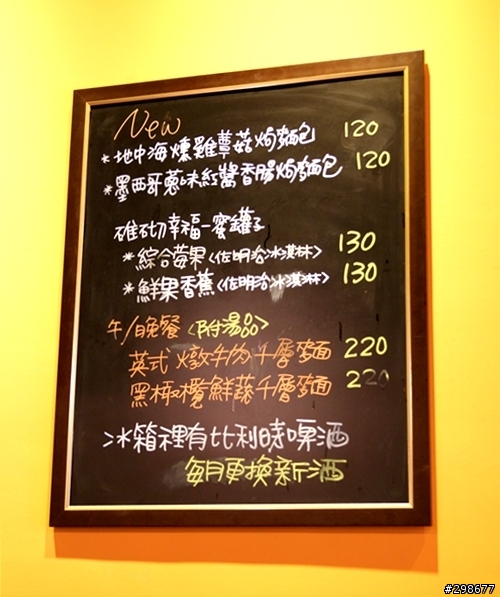 New
*地中海燻雞蘑菇焗麵包 120
*墨西哥蔥味紅醬香腸焗麵包 120
幸福一蜜罐子
*綜合莓果〈佐明治冰淇淋〉 130
*鮮果香蕉〈佐明治冰淇淋〉 130
午/晚餐〈附湯品〉
英式燉牛肉千層麵 220
黑橄欖鮮蔬千層麵 220
冰箱裡有比利時啤酒
每月更換新酒
#298677